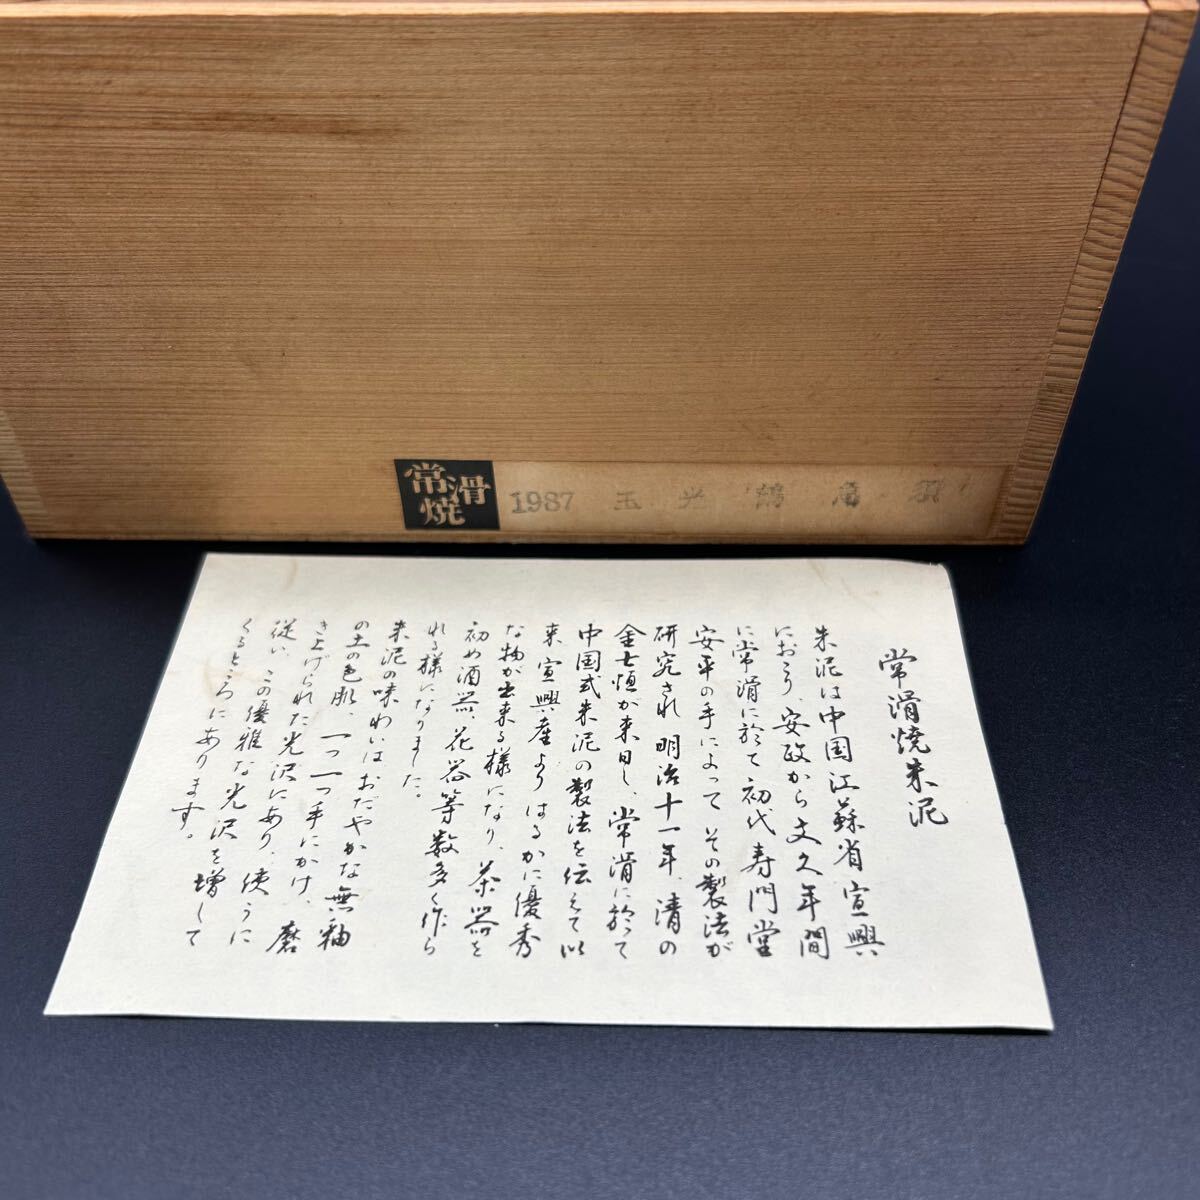 常滑焼
1987 玉光
常滑焼朱泥
朱泥は中国江蘇省宣興
におこり、安政から文久年間
に常滑に於て初代寿門堂
安平の手によって その製法が
研究され 明治十一年、清の
金士恒が来日し、常滑に於て
中国式朱泥の製法を伝えて以
来 宣興産よりはるかに優秀
な物が出来る様になり、茶器を
初め酒器、花器等数多く作ら
れる様になりました。
朱泥の味わいはおだやかな無釉
の土の色肌、一つ一つ手にかけ、磨
き上げられた光沢にあり、使うに
従い、この優雅な光沢を増して
くるところにあります。